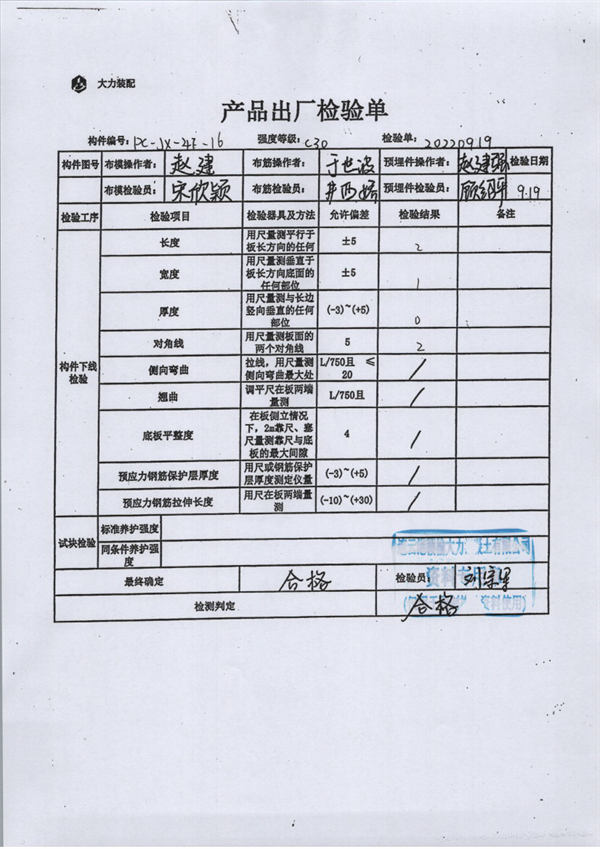 大力装配
产品出厂检验单
构件编号: PC-JX-4F-16 强度等级: C30 检验单: 20220919
构件图号 布模操作者: 赵建 布筋操作者: 于世波 预埋件操作者: 赵建强 检验日期
布模检验员: 宋欣颖 布筋检验员: 预埋件检验员: 9.19
检验工序 检验项目 检验器具及方法 允许偏差 检验结果 备注
构件下线检验
长度 用尺量测平行于板长方向的任何 ±5 2
宽度 用尺量测垂直于板长方向底面的任何部位 ±5 1
厚度 用尺量测与长边竖向垂直的任何部位 (-3)~(+5) 0
对角线 用尺量测板面的两个对角线 5 2
侧向弯曲 拉线，用尺量测侧向弯曲最大处 L/750且 ≤20 /
翘曲 调平尺在板两端量测 L/750且 /
底板平整度 在板侧立情况下，2m靠尺、塞尺量测靠尺与底板的最大间隙 4 /
预应力钢筋保护层厚度 用尺或钢筋保护层厚度测定仪量 (-3)~(+5) /
预应力钢筋拉伸长度 用尺在板两端量测 (-10)~(+30) /
试块检验 标准养护强度
同条件养护强度
最终确定 合格 检验员:
检测判定 合格